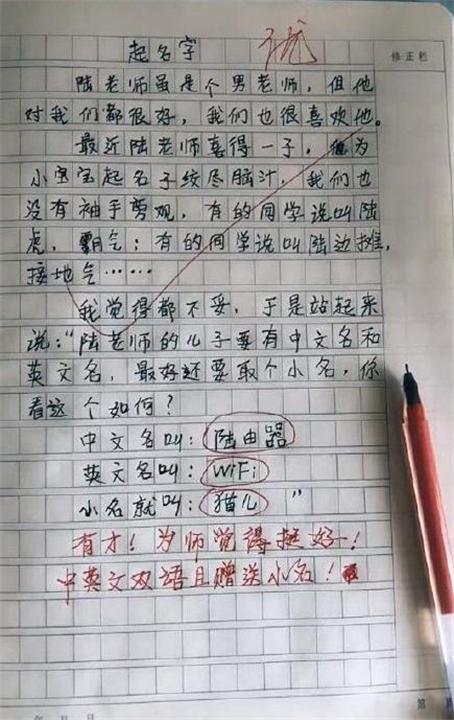 起名字
修正栏
陆老师虽是个男老师，但他
对我们都很好，我们也很喜欢他。
最近陆老师喜得一子，为
小宝宝起名子绞尽脑汁，我们也
没有袖手旁观，有的同学说叫陆
虎，霸气；有的同学说叫陆边摊，
接地气……
我觉得都不妥，于是站起来
说：“陆老师的儿子要有中文名和
英文名，最好还要取个小名，你
看这个如何？
中文名叫：陆由器
英文名叫：WiFi
小名就叫：猫儿”
有才！为师觉得挺好！
中英文双语且赠送小名！
年 月 日 第